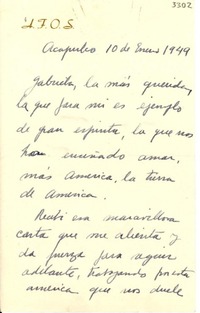 3302
4FOS
Acapulco 10 de Enero 1949
Gabriela, la más querida,
la que para mi es ejemplo
de gran espíritu, la que nos
ha enseñado amar,
más America, la tierra
de America.
Recibí esa maravillosa
carta que me alienta y
da fuerza para seguir
adelante, trabajando por esta
america que nos duele